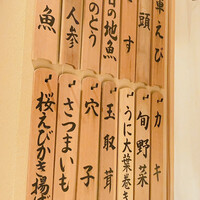 車えび
頭
す
日の地魚
のとう
人参
魚
カキ
旬野菜
うに大葉巻き
玉取茸
穴子
さつまいも
桜えびかき揚げ